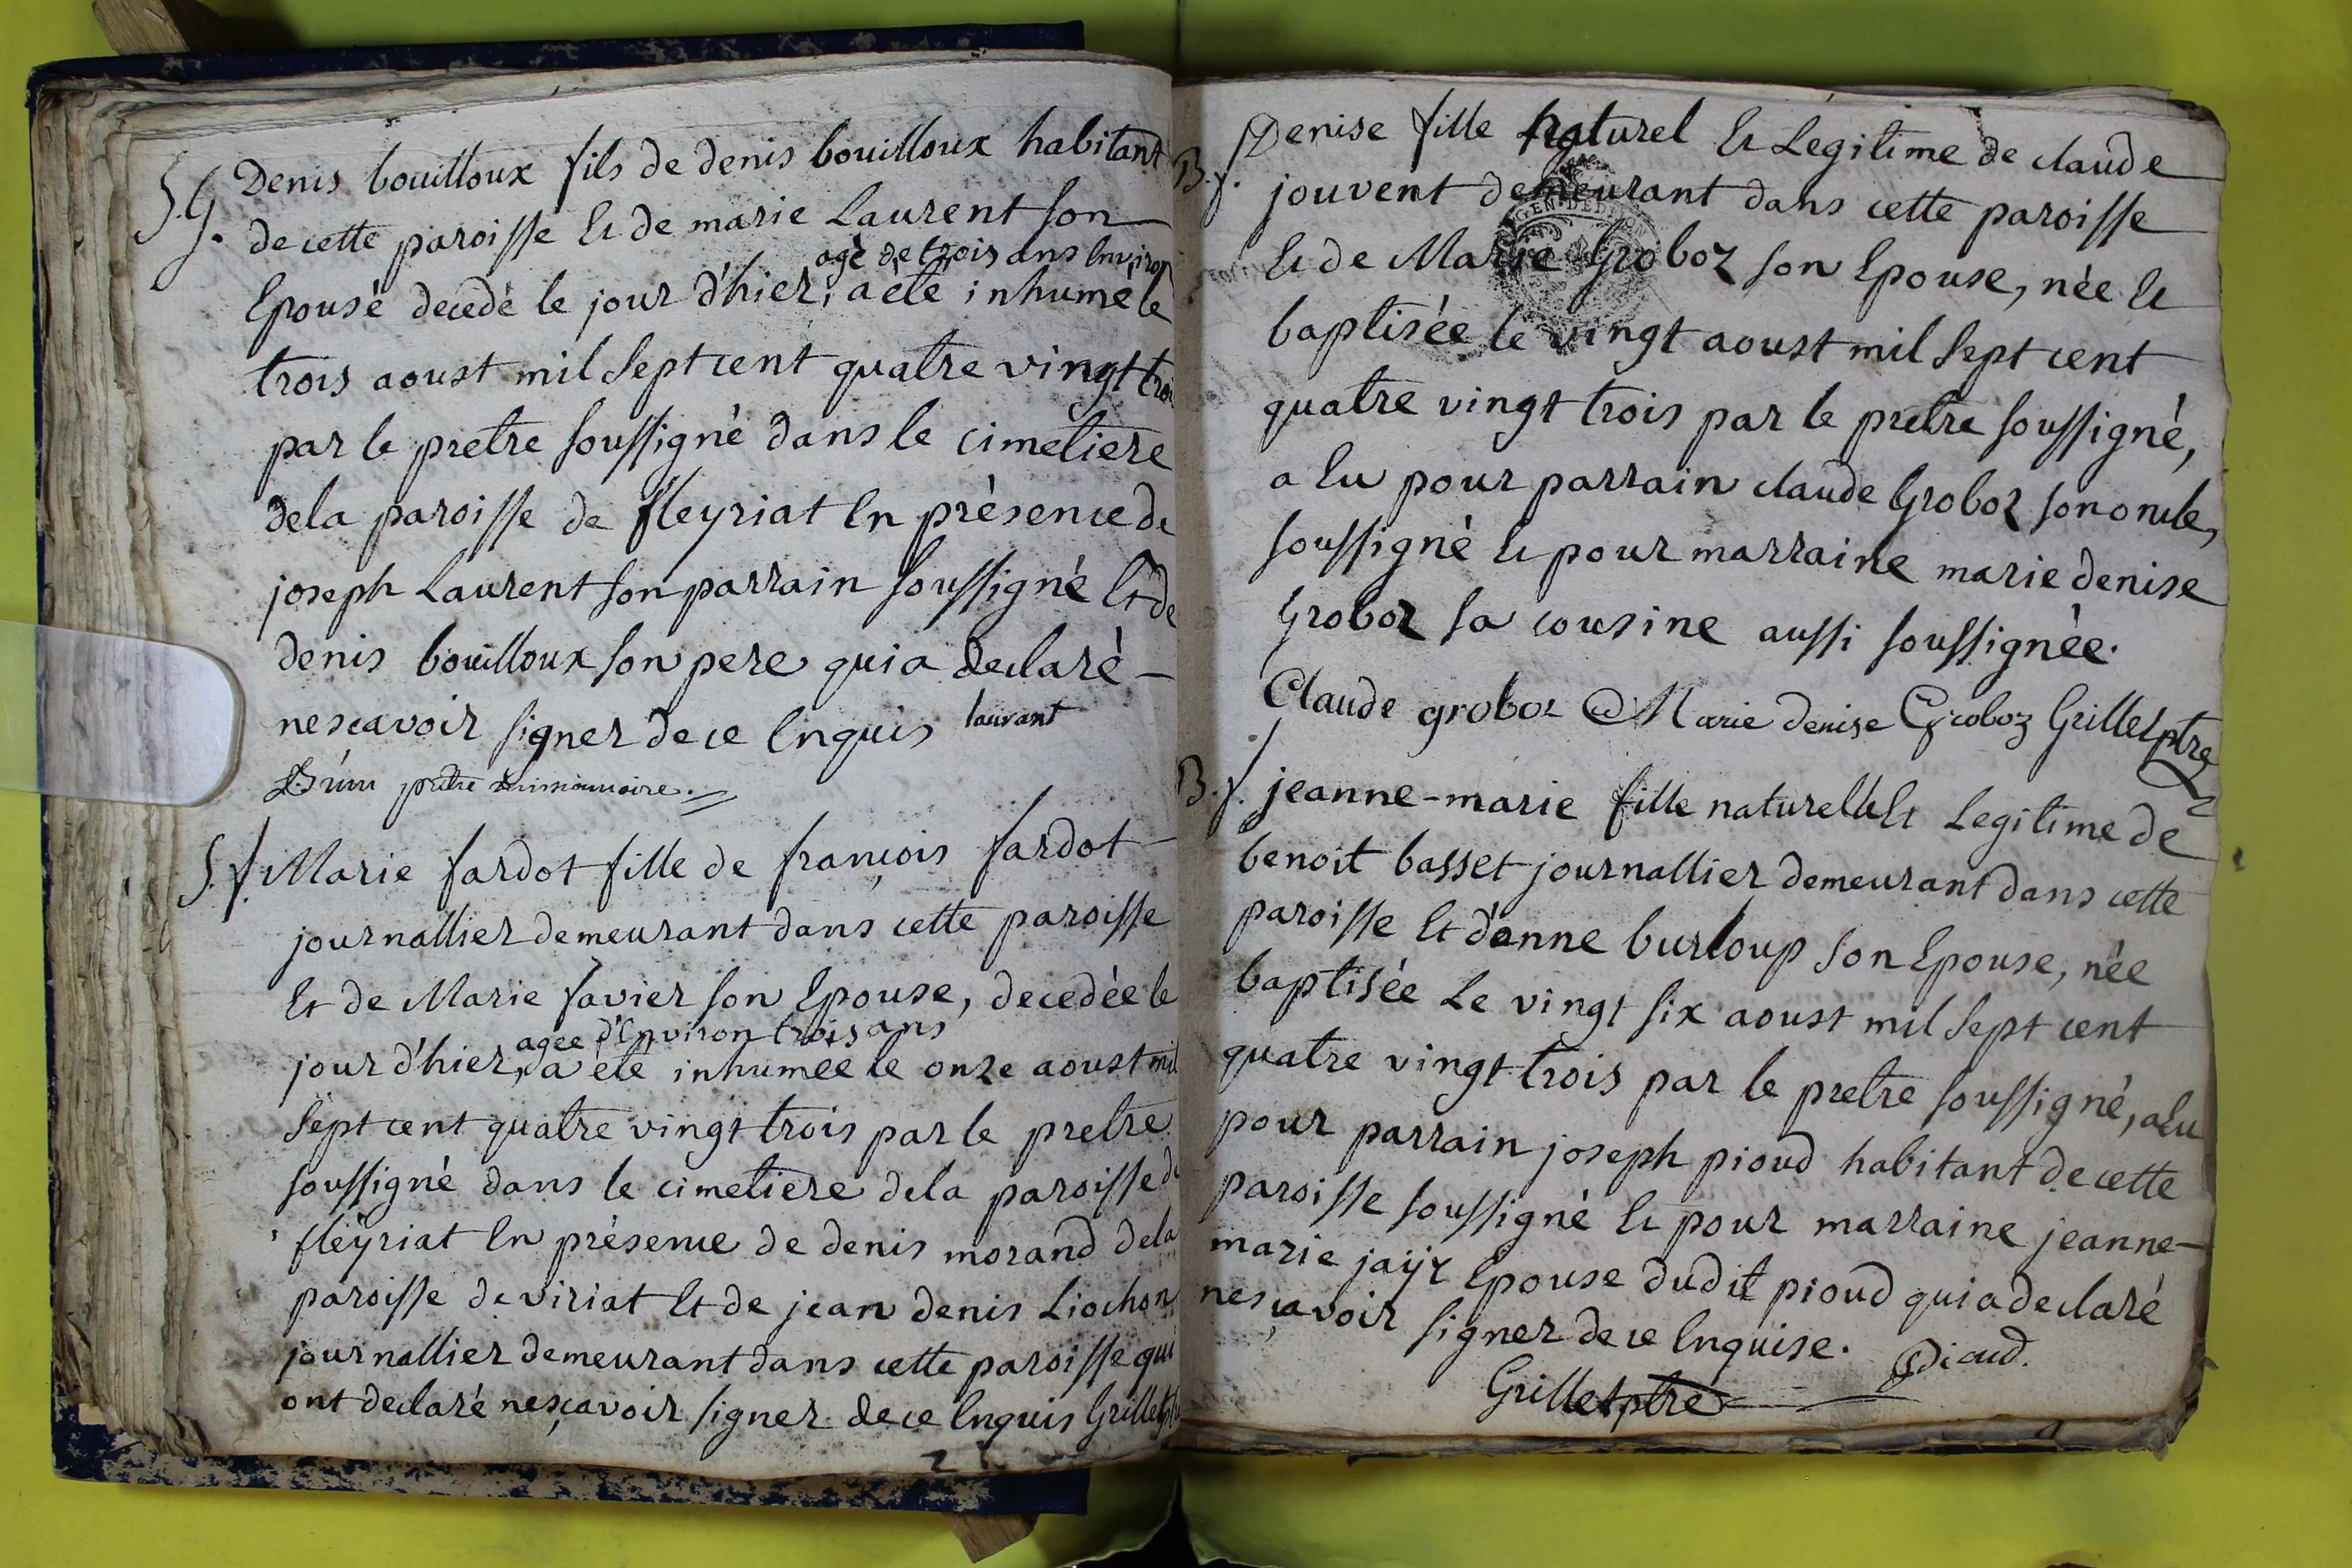 S.G. Denis bouilloux fils de denis bouilloux habitant
de cette paroisse Et de marie Laurent son
agè de trois ans Environ
Epousè decedè le jour d'hier, a èté inhumè le
trois aoust mil Sept cent quatre vingt trois
par le pretre soussignè dans le cimetiere
dela paroisse de fleyriat En prèsence de
joseph Laurent son parrain soussignè Et de
denis bouilloux son pere qui a declarè -
nescavoir signer de ce Enquis laurant
prètre
S.f. Marie fardot fille de françois fardot -
journallier demeurant dans cette paroisse
Et de Marie favier son Epouse, decedèe le
agee d'Environ trois ans
jour d'hier, a èté inhumée le onze aoust mil
Sept cent quatre vingt trois par le pretre
soussignè dans le cimetiere dela paroisse de
flèyriat En prèsence de denis morand dela
paroisse de viriat Et de jean denis Liochon
journallier demeurant dans cette paroisse qui
ont declaré nesçavoir signer de ce Enquis Grillet ptre
B.f. Denise fille naturel Et Legitime de claude
jouvent demeurant dans cette paroisse
Et de Marie Groboz son Epouse, nèe Et
baptisèe le vingt aoust mil Sept cent
quatre vingt trois par le pretre soussignè,
a Eu pour parrain claude Groboz son oncle,
soussignè Et pour marraine marie denise
Groboz sa cousine aussi soussignèe.
Claude groboz Marie denise Groboz Grillet ptre
B.f. jeanne-marie fille naturelle Et Legitime de
benoit basset journallier demeurant dans cette
paroisse Et d'anne burloup son Epouse, nèe
baptisèe Le vingt six aoust mil Sept cent
quatre vingt trois par le pretre soussigné, a Eu
pour parrain joseph pioud habitant de cette
paroisse soussignè Et pour marraine jeanne-
marie jaÿr Epouse dudit pioud qui a declaré
nesçavoir signer de ce Enquise. Pioud.
Grillet ptre